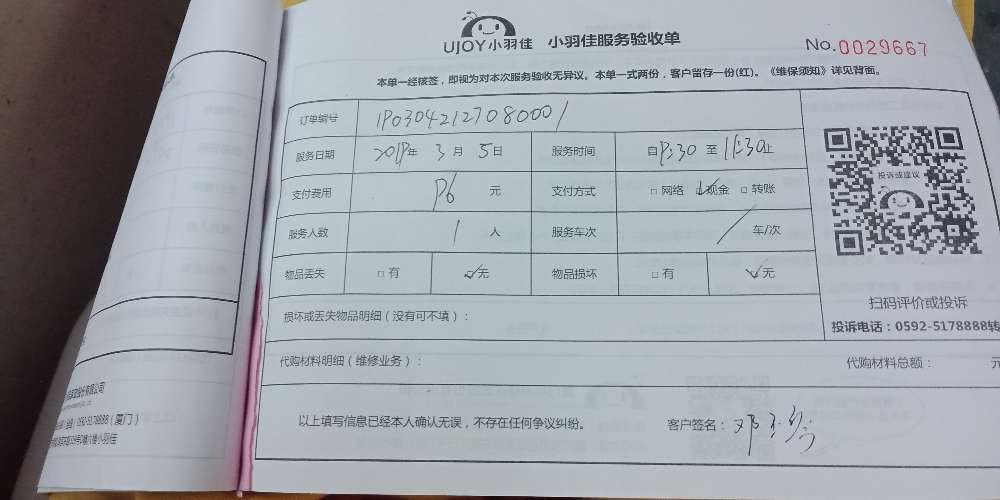 UJOY小羽佳 小羽佳服务验收单
No.0029667
本单一经核签，即视为对本次服务验收无异议。本单一式两份，客户留存一份(红)。《维保须知》详见背面。
订单编号 1P03042127080001
服务日期 2019年 3月 5日 服务时间 自 8:30 至 11:30止
支付费用 元 支付方式 □网络 ☑现金 □转账
服务人数 1 人 服务车次 / 车/次
物品丢失 □有 ☑无 物品损坏 □有 ☑无
投诉或建议
损坏或丢失物品明细（没有可不填）：
扫码评价或投诉
投诉电话：0592-5178888转
代购材料明细（维修业务）： 代购材料总额： 元
以上填写信息已经本人确认无误，不存在任何争议纠纷。 客户签名：